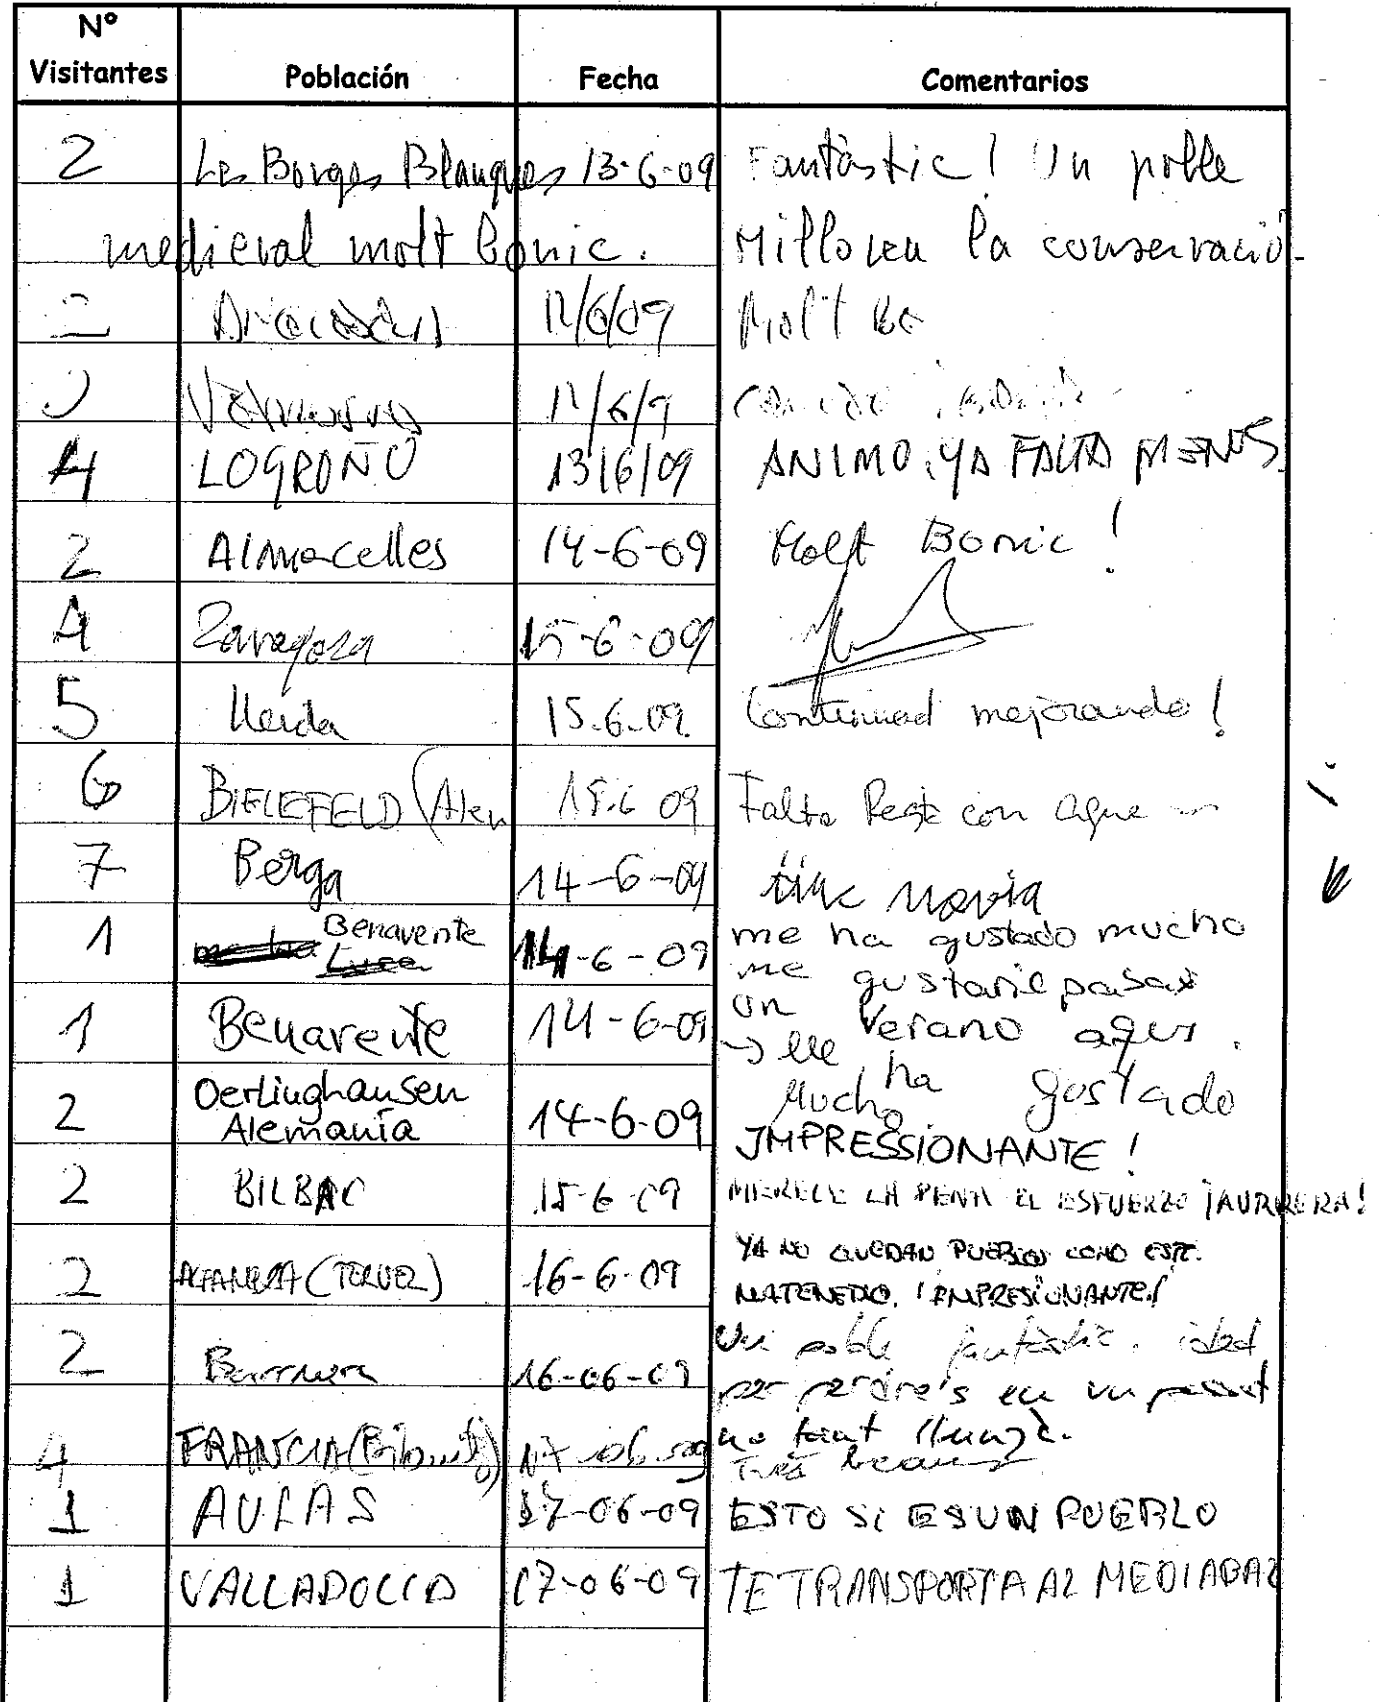 Nº
Visitantes Población Fecha Comentarios
2 Les Borges Blanques 13-6-09 Fantàstic! Un poble
medieval molt bonic. Milloreu la conservació.
2 12/6/09 Molt be
12/6/9
4 LOGROÑO 13/6/09 ANIMO, YA FALTA MENOS
2 Almacelles 14-6-09 Molt Bonic!
4 Zaragoza 15-6-09
5 lleida 15.6.09 Continuad mejorando!
6 BIELEFELD (Alem 15.6 09 Falta con agua
7 Berga 14-6-09 tinc novia
1 Benavente 14-6-09 me ha gustado mucho
me gustaria pasar
un verano aqui.
1 Benavente 14-6-09 → Me ha gustado
Mucho
2 Oerlinghausen
Alemania 14-6-09 IMPRESSIONANTE!
2 BILBAO 15-6-09 MERECE LA PENA EL ESFUERZO ¡AURRERA!
2 (TERUEL) 16-6-09 YA NO QUEDAN PUEBLOS COMO ESTE.
MATENEDLO. ¡IMPRESIONANTE!
2 Barruera 16-06-09 Un poble fantàstic, ideal
per perdre's en un passat
no tant llunyà.
4 FRANCIA 17-06-09 Très beau
1 AULAS 17-06-09 ESTO SI ES UN PUEBLO
1 VALLADOLID 17-06-09 TE TRANSPORTA AL